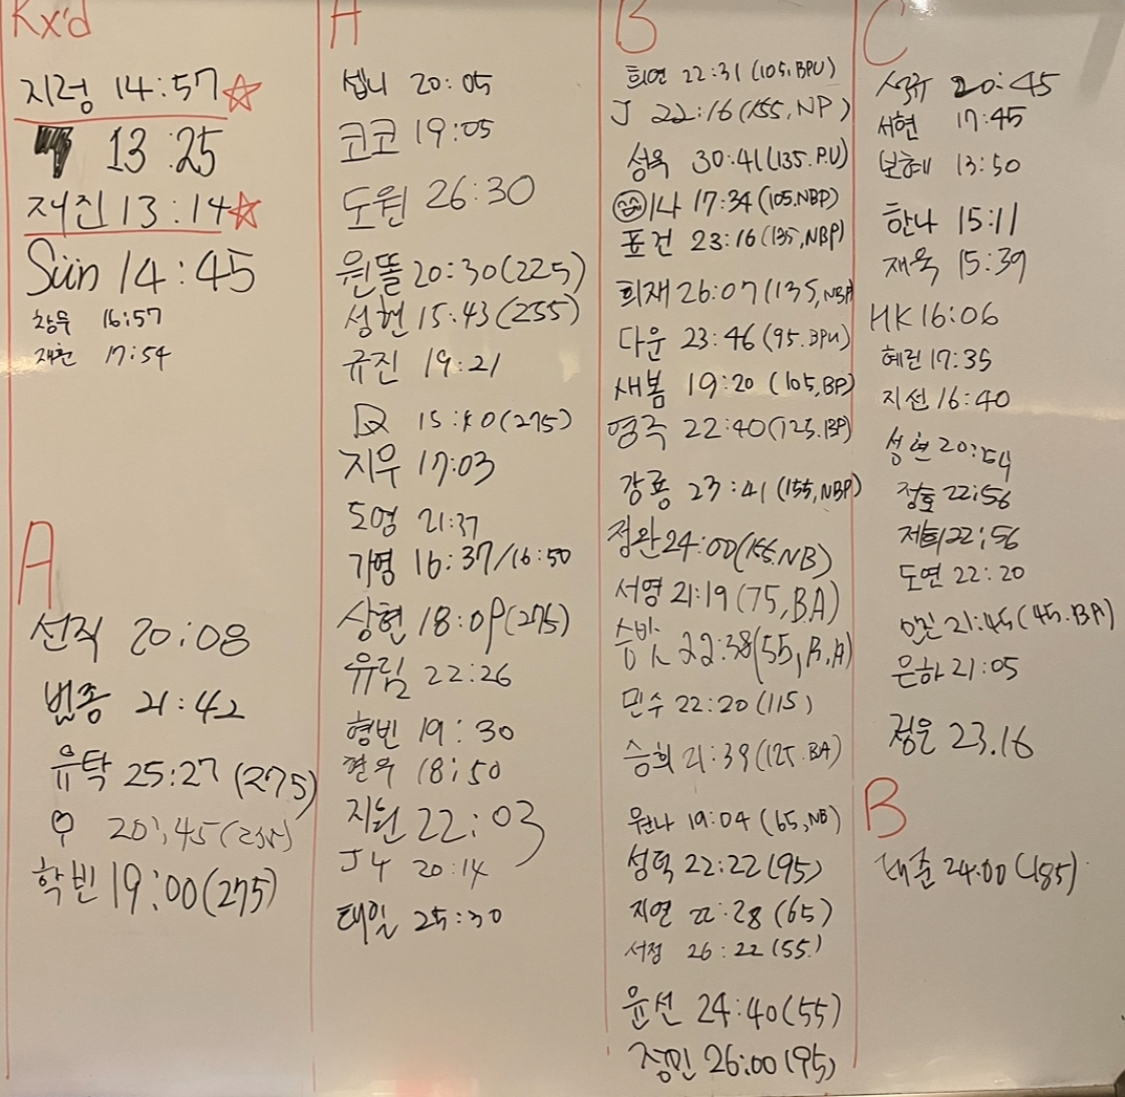 Rx'd
지렁 14:57
13:25
재진 13:14
Sun 14:45
창우 16:57
재헌 17:54
A
선직 20:08
범종 21:42
유탁 25:27 (275)
우 20:45(255)
학빈 19:00(275)
A
썹니 20:05
코코 19:05
도원 26:30
원똘 20:30(225)
성현 15:43(255)
규진 19:21
15:40(275)
지우 17:03
도영 21:37
가영 16:37/16:50
상현 18:09(275)
유림 22:26
형빈 19:30
현우 18:50
지원 22:03
J4 20:14
태일 25:30
B
희연 22:31 (105, BPU)
J 22:16(155, NP)
성욱 30:41(135. PU)
나 17:34(105. NBP)
표건 23:16(135, NBP)
희재 26:07(135, NBP)
다운 23:46 (95. BPU)
새봄 19:20 (105, BP)
영국 22:40(125. BP)
강룡 23:41 (155, NBP)
정완 24:00(155. NB)
서영 21:19 (75, BA)
22:38(55, B.A)
민수 22:20 (115)
승희 21:39(125. BA)
원나 19:04 (65, NB)
성덕 22:22(95)
지연 22:28 (65)
서정 26:22 (55)
윤선 24:40(55)
정민 26:00(95)
C
성규 20:45
서현 17:45
보혜 13:50
한나 15:11
재욱 15:39
HK 16:06
혜린 17:35
지선 16:40
성현 20:54
정호 22:56
저희 22:56
도연 22:20
21:45(45. BA)
은하 21:05
정은 23.16
B
대준 24:00(185)